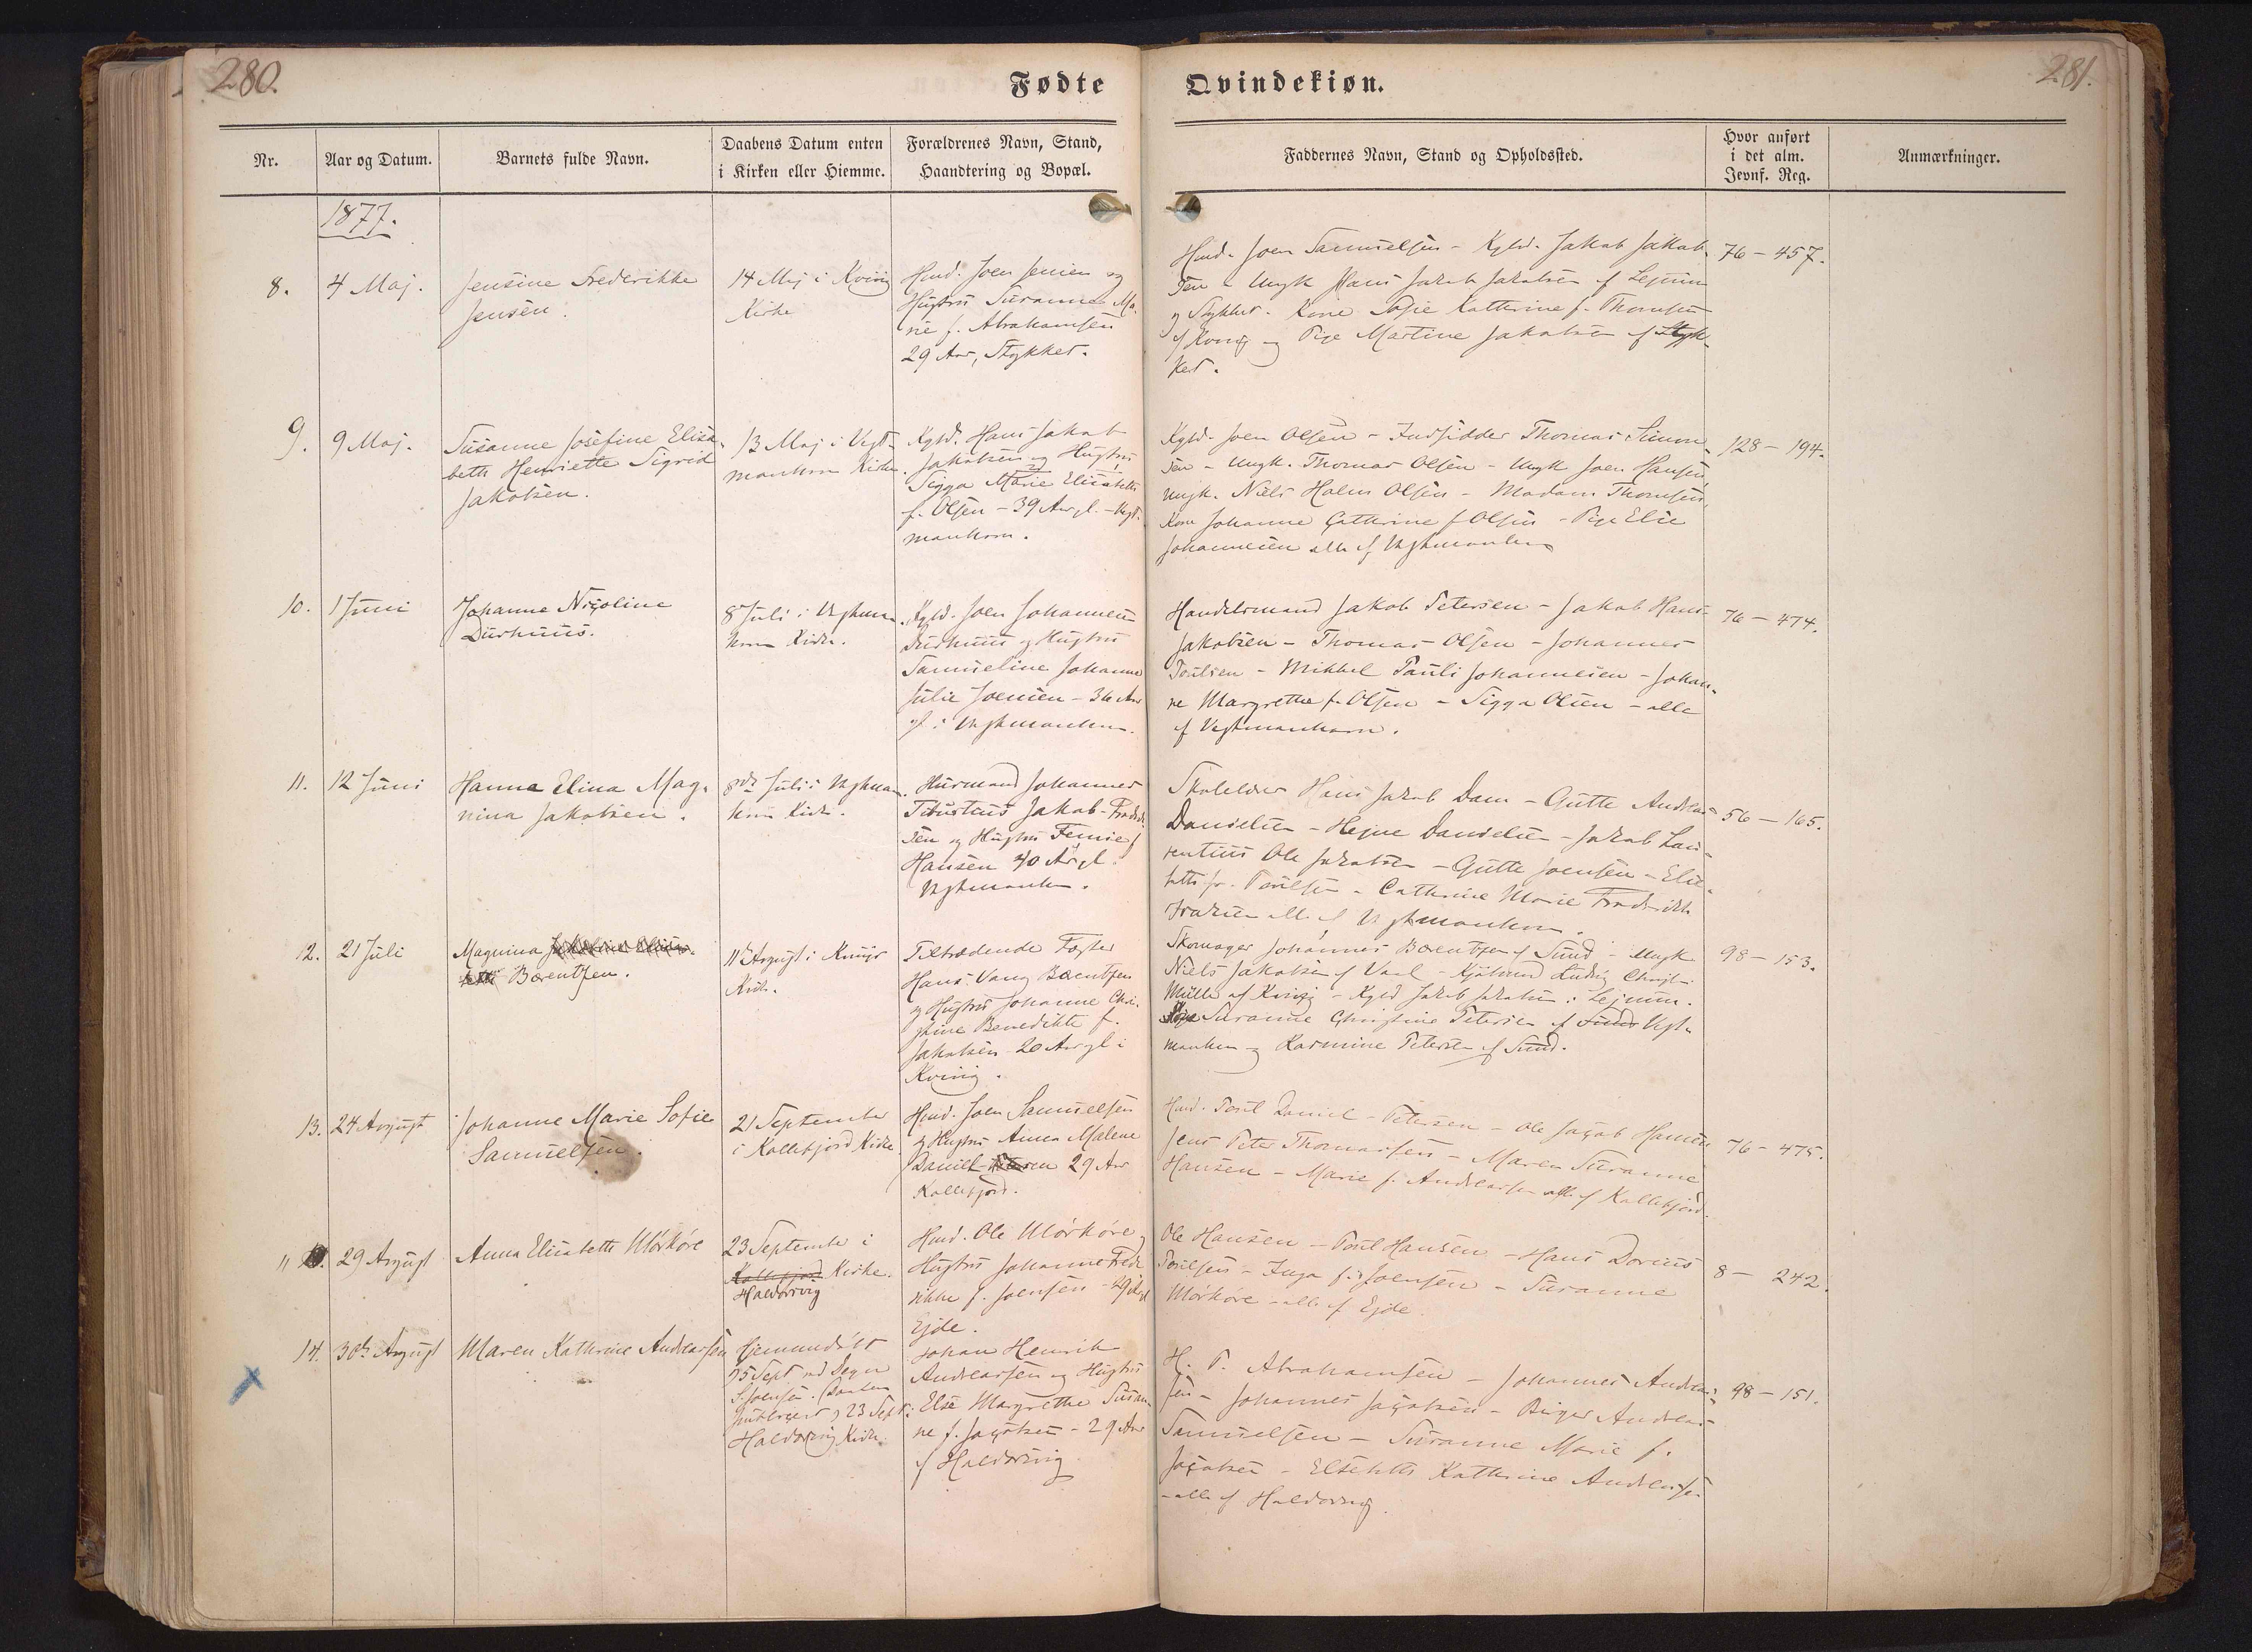 280.
Fødte
Qvindekiøn.
281.
Nr.
Aar og Datum.
Barnets fulde Navn.
Daabens Datum enten
i Kirken eller Hiemme.
Forældrenes Navn, Stand,
Haandtering og Bopæl.
Faddernes Navn, Stand og Opholdssted.
Hvor anført
i det alm.
Jevnf. Reg.
Anmærkninger.
1877.
8.
4 Maj.
Jensine Frederikke
Jensen.
14 Maj i Kvivig
Kirke
Hmd. Joen Jensen og
Hustru Susanne Ma-
rie f. Abrahamsen
29 Aar, Stykket.
Hmd. Joen Samuelsen - Kgbd. Jakob Jakob-
sen - Ungk Hans Jakob Jakobsen af Lejnum
og Stykket. Kone Sofie Katherine f. Thomsen
af Kvivig og Pige Martine Jakobsen af Styk-
ket.
76 - 457.
9.
9 Maj.
Susanne Josefine Elisa-
beth Henriette Sigrid
Jakobsen.
13 Maj i Vest-
manhavn Kirke.
Kgbd. Hans Jakob
Jakobsen og Hustru
Sigga Marie Elisabeth
f. Olsen - 39 Aar gl. - Vest-
manhavn.
Kgbd. Joen Olsen - Indsidder Thomas Simon-
sen - Ungk. Thomas Olsen - Ungk Joen Hansen
Ungk. Niels Holm Olsen - Madam Thomsen,
Kone Johanne Cathrine f Olsen - Pige Elsie
Johannesen alle af Vestmanhavn
128 - 194.
10.
1 Juni
Johanne Nicoline
Durhuus.
8 Juli i Vestman-
havn Kirke.
Kgbd. Joen Johannes
Durhuus og Hustru
Samueline Johanne
Julie Joensen - 36 Aar
gl. i Vestmanhavn.
Handelsmand Jakob Petersen - Jakob Hans
Jakobsen - Thomas Olsen - Johannes
Poulsen - Mikkel Pauli Johannesen - Johan-
ne Margrethe f. Olsen - Sigga Olsen - alle
af Vestmanhavn.
76 - 474.
11.
12 Juni
Hanna Elina Mag-
nina Jakobsen.
8de Juli i Vestman-
havn Kirke.
Husmand Johannes
Jakob
sen og Hustru
Hansen 40 Aar gl.
Vestmanhavn.
Hans Jakob Dam - Gutte Andreas
Danielsen - Hejne Danielsen - Jakob Lau-
rentius Ole Jakobsen - Gutte Joensen - Elsi-
beth f. Poulsen - Cathrine Marie Frederikke
alle af Vestmanhavn.
56 - 165.
12.
21 Juli
Magnina
Bærentsen.
11te August i Kvivigs
Kirke.
Tiltrædende Fæster
Hans Vang Bærentsen
og Hustru Johanne Chri-
stine Benedikte f.
Jakobsen 20 Aar gl i
Kvivig.
Skomager Johannes Bærentsen af Sund - Ungk
Niels Jakobsen af Vaal - Kjøbmd Ludvig Christ.
Müller af Kvivig - Kgbd Jakob Jakobsen i Lejnum.
Susanne Christine Petersen af Sund Vest-
manhavn og Rasmine Petersen af Sund.
98 - 153.
13.
24 August
Johanne Marie Sofie
Samuelsen.
21 September
i Kollefjord Kirke
Hmd. Joen Samuelsen
og Hustru Anna Malene
Daniel 29 Aar
Kollefjord.
Hmd. Poul Daniel - Petersen - Ole Jacob Hansen
Jens Peter Thomassen - Maren Susanne
Hansen - Marie f. Andreassen alle af Kollefjord.
76 - 475.
"
29 August
Anna Elisabeth Mörköre
23 September i
Kollefjord Kirke.
Haldorsvig
Hmd. Ole Mörköre og
Hustru Johanne Frede-
rikke f. Joensen - 29 Aar
Ejde.
Ole Hansen - Poul Hansen - Hans Dorius
Poulsen - Inga f. Joensen - Susanne
Mörköre - alle af Ejde.
8 - 242.
14.
30te August
Maren Kathrine Andreassen
Hjemmedøbt
5 Sept. ved Degn
S. Joensen. Daaben
publiceret 23 Sept i
Haldorsvig Kirke.
Johan Henrik
Andreassen og Hustru
Else Margrethe Susan-
ne f. Jacobsen - 29 Aar
af Haldorsvig
H. P. Abrahamsen - Johannes Andreas-
sen - Johannes Jacobsen - Birger Andreas
Samuelsen - Susanne Marie f.
Jacobsen - Elsebeth Katherine Andreassen
- alle af Haldorsvig.
98 - 151.